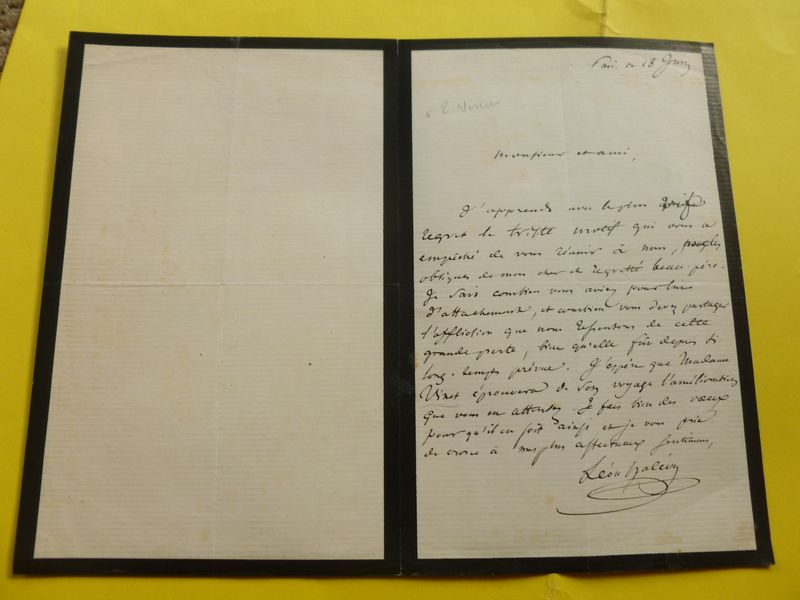 Paris ce 18 Juin
E. Vinet
Monsieur et ami,
J'apprends avec le plus vif
regret le triste motif qui vous a
empêché de vous réunir à nous,
obsèques de mon cher et regretté beau-père.
Je sais combien vous aviez pour lui
d'attachement, et combien vous devez partager
l'affliction que nous ressentons de cette
grande perte, bien qu'elle fût depuis si
long-temps prévue. J'espère que Madame
Vinet éprouvera de son voyage l'amélioration
que vous en attendez. Je fais bien des vœux
pour qu'il en soit ainsi et je vous prie
de croire à mes plus affectueux sentimens,
Léon Halévy